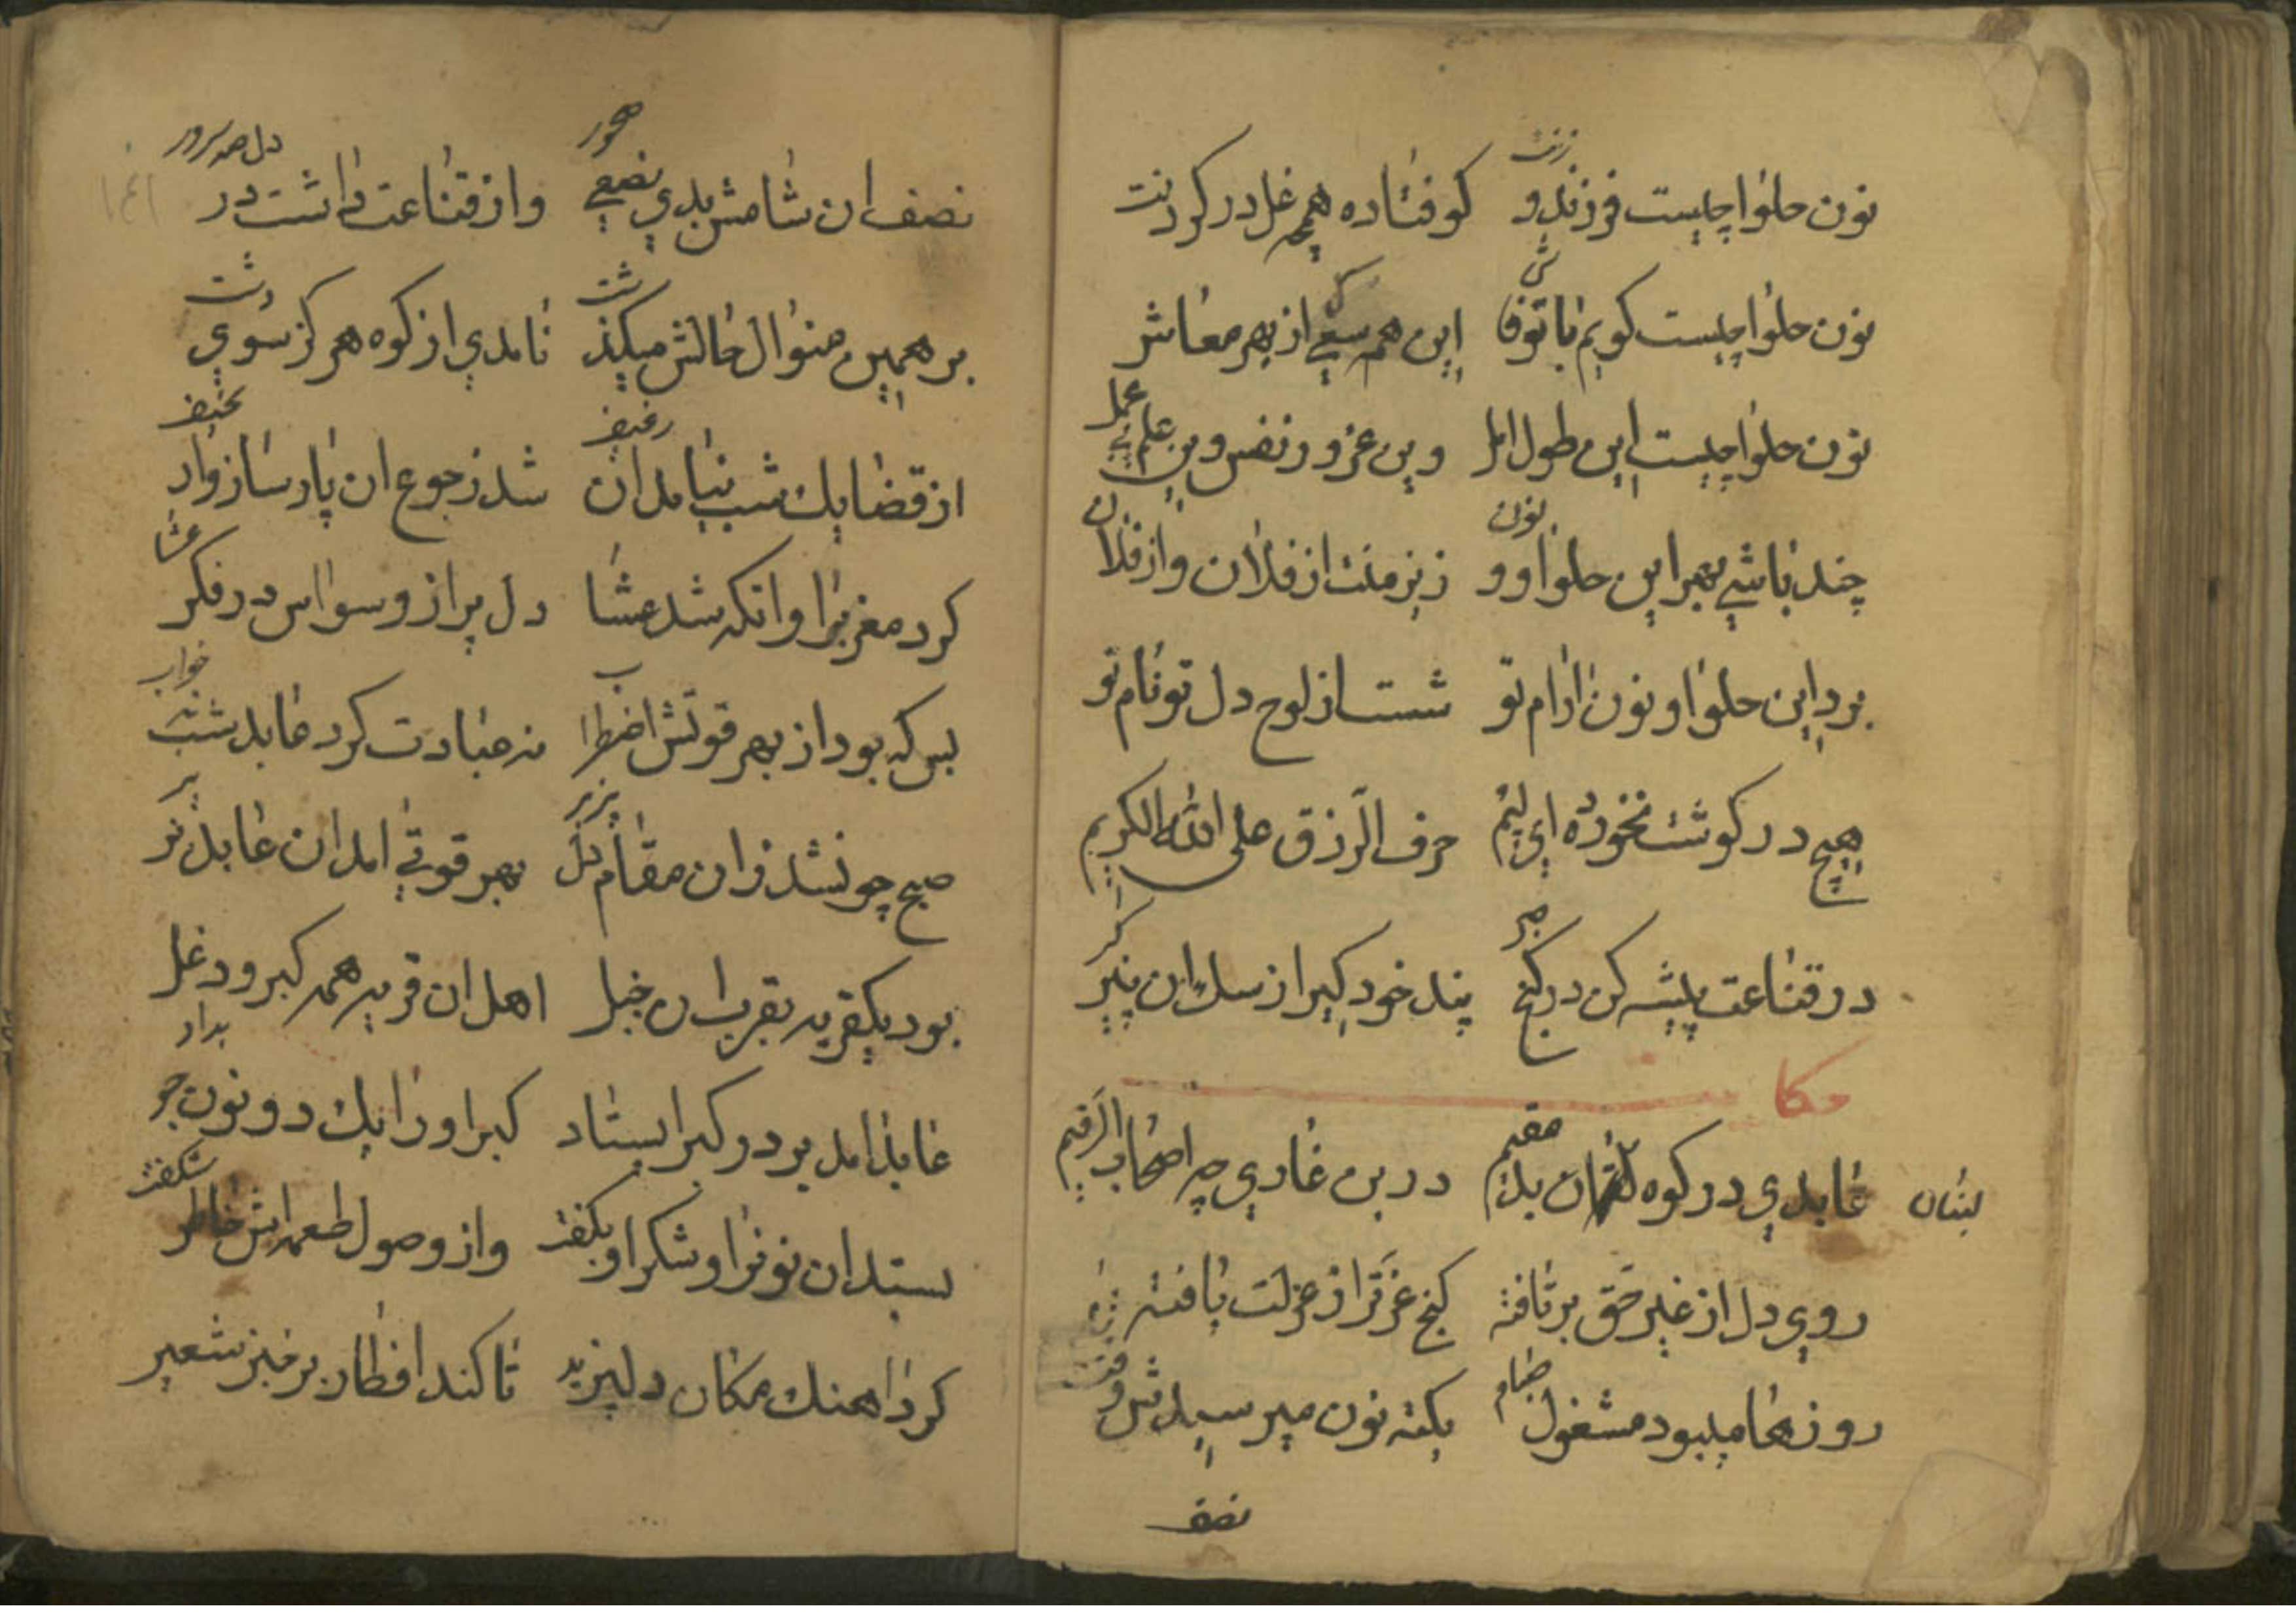 نون حلوا چیست فرزند و زنت کوفتاده همچه غل در کردنت
نون حلوا چیست کویم با تو فاش این همه سعی از بهر معاش
نون حلوا چیست این طول امل وین غرور نفس وین علم بی عمل
چند باشی بهر این حلوا و نون زیر منت از فلان و از فلان
برد این حلوا و نون ارام تو شست از لوح دل تو نام تو
هیچ در کوشت نخورده ای لئیم حرف الرزق علی الله الکریم
در قناعت پیشه کن در کنج صبر پند خود کیر از سك ان پیر کبر
حکا
لبنان
عابدی در کوه لقمان بد مقیم در بن غاری چه اصحاب الرقیم
روی دل از غیر حق برتافته کنج عزترا از عزلت یافته
روزها میبود مشغول صیام یکته نون میرسیدش وقت شام
نصف
نصف ان شامش بدی نصفی سحور واز قناعت داشت در دل صد سرور
برهمین منوال حالش میکذشت نامدی از کوه هرکز سوی دشت
از قضا یك شب نیامد ان رغیف شد زجوع ان پارسا زار و نحیف
کرد مغربرا و انکه شد عشا دل پر از وسواس در فکر عشا
بس که بود از بهر قوتش اضطراب نه عبادت کرد عابد شب نه خواب
صبح چونشد زان مقام دلپزیر بهر قوتی امد ان عابد بزیر
بود یکقریه بقرب ان جبل اهل ان قریه همه کبر و دغل
عابد امد بر در کبر ایستاد کبر اورا یك دو نون جو بداد
بستد ان نونرا و شکر او بکفت واز وصول طعمه اش خاطر شکفت
کرد اهنك مکان دلپزیر تا کند افطار بر خبز شعیر